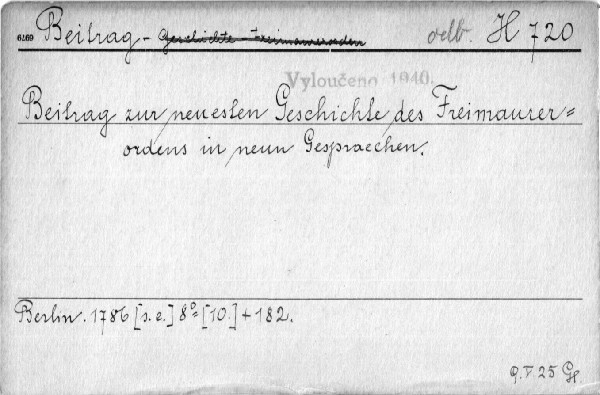 6269 Beitrag - Geschichte Freimaurerorden odb. H 720
Vyloučeno 1940.
Beitrag zur neuesten Geschichte des Freimaurer=
ordens in neun Gespraechen.
Berlin. 1786 [s. e.] 8° [10.] + 182.
9. V 25 GH